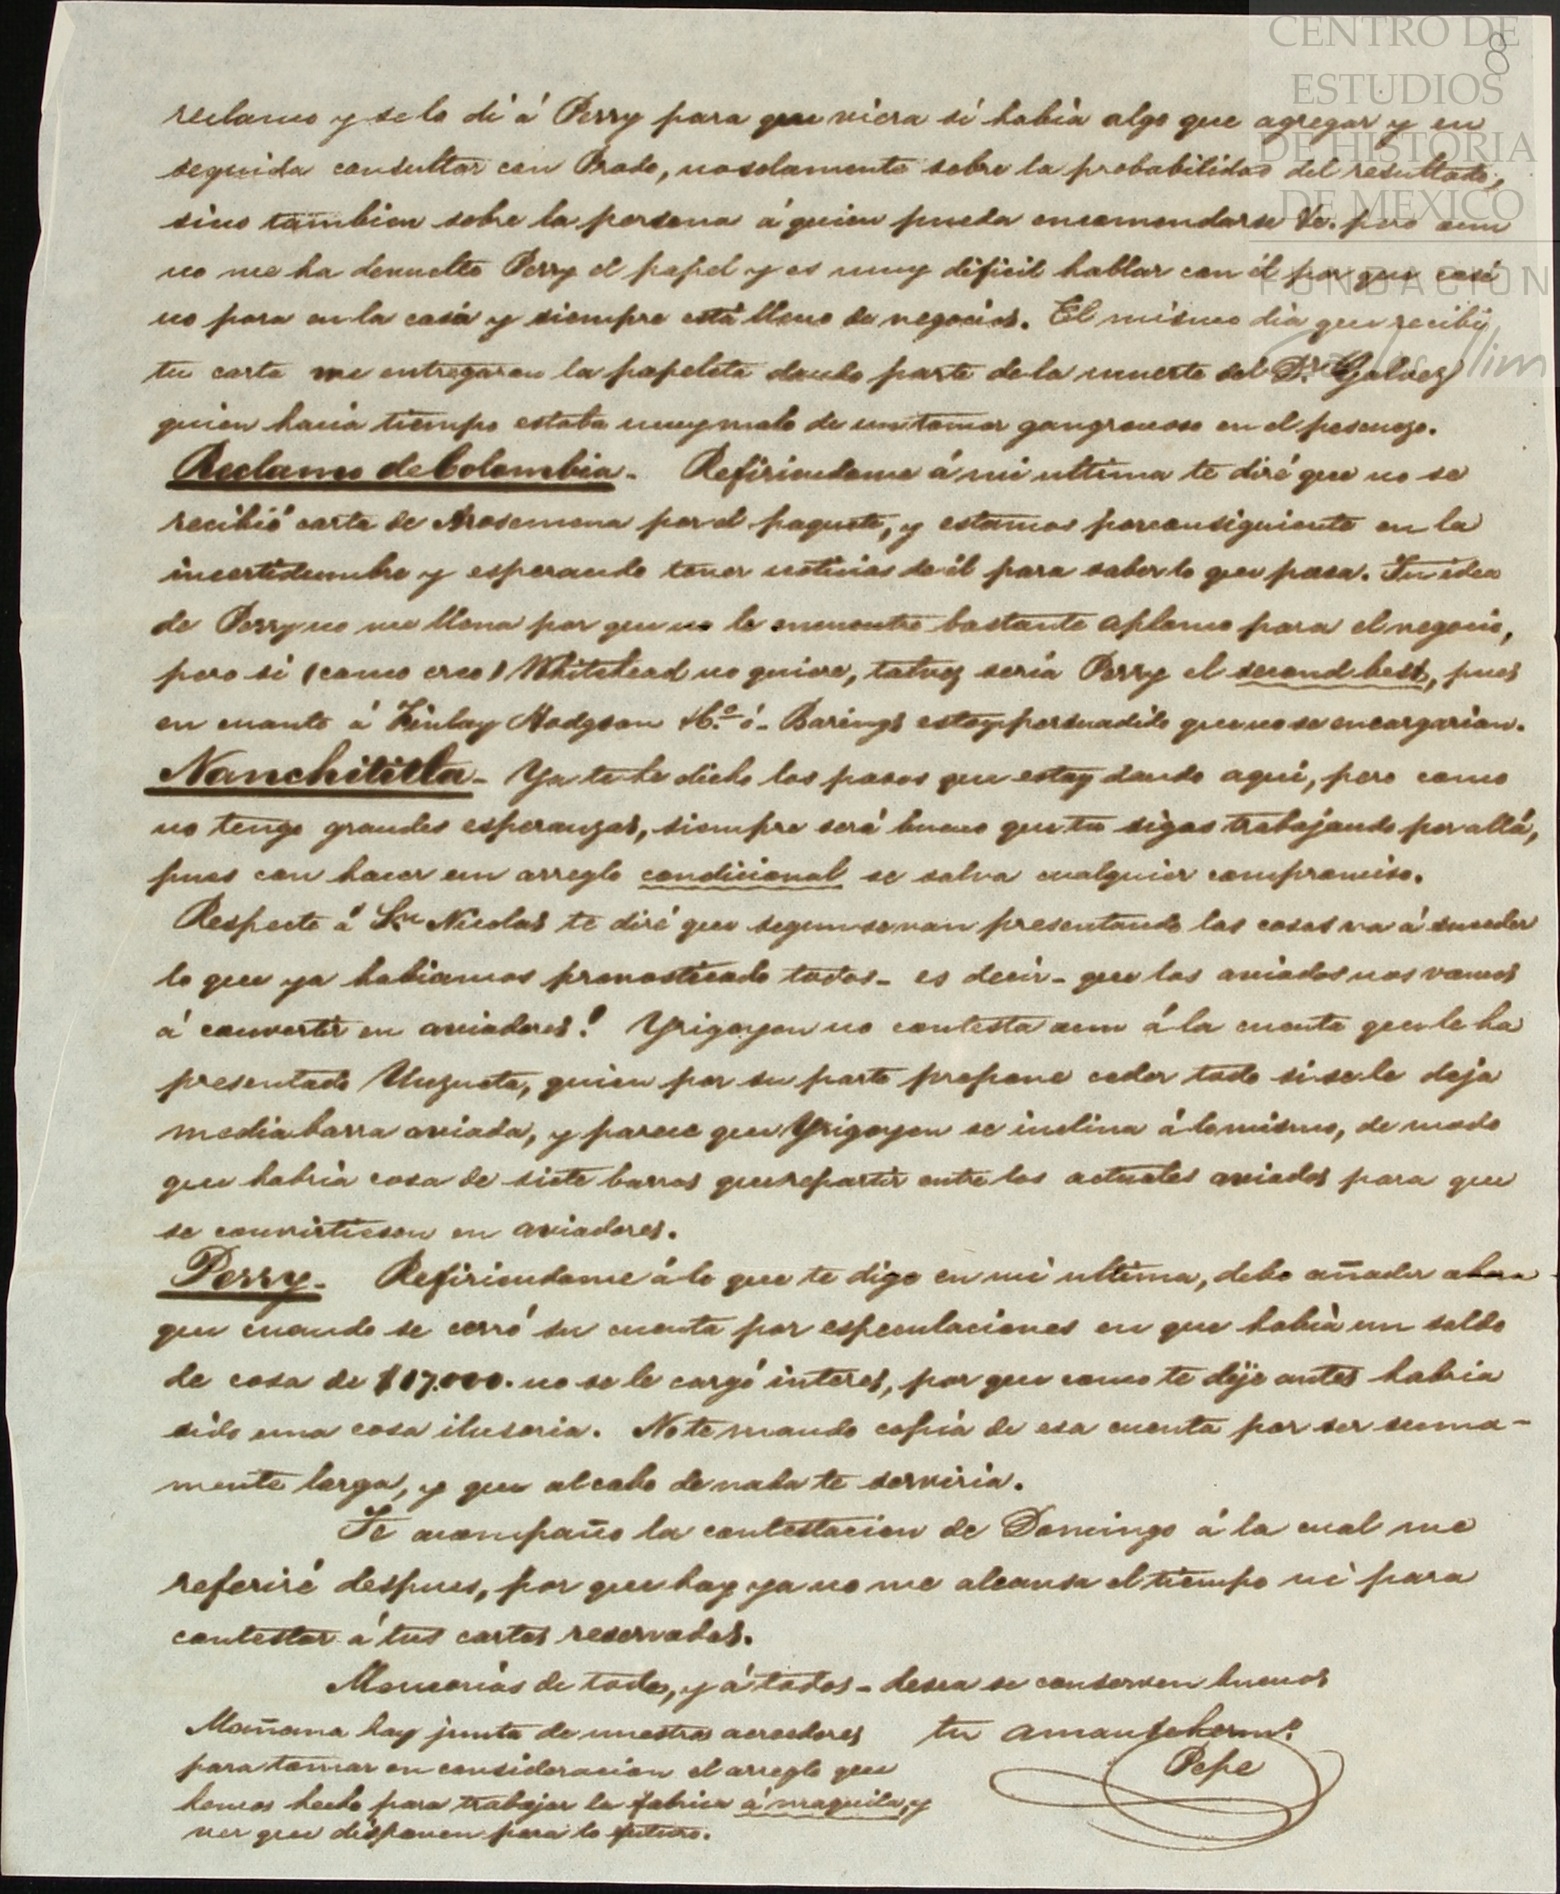 CENTRO DE
ESTUDIOS
DE HISTORIA
DE MEXICO
FUNDACIÓN
Carlos Slim
8
reclamo y se lo dí á Perry para que viera si habia algo que agregar y en
seguida consultar con Prado, no solamente sobre la probabilidad del resultado,
sino tambien sobre la persona á quien pueda encomendarse &c. pero aun
no me ha devuelto Perry el papel y es muy dificil hablar con él por que casi
no para en la casa y siempre está lleno de negocios. El mismo dia que recibi
tu carta me entregaron la papeleta dando parte de la muerte del Dr. Galvez
quien hacia tiempo estaba muy malo de un tumor gangrenoso en el pescuezo.
Reclamo de Colombia - Refiriendome á mi ultima te diré que no se
recibió carta de Arosemena por el paquete, y estamos por consiguiente en la
incertidumbre y esperando tener noticias de él para saber lo que pasa. Tu idea
de Perry no me llena por que no le encuentro bastante aplomo para el negocio,
pero si (como creo) Whitehead no quiere, talvez seria Perry el second best, pues
en cuanto á Finlay Hodgson & Co. ó - Barings estoy persuadido que no se encargarian.
Nanchititla - Ya te he dicho los pasos que estoy dando aqui, pero como
no tengo grandes esperanzas, siempre será bueno que tu sigas trabajando por allá,
pues con hacer un arreglo condicional se salva cualquier compromiso.
Respecto á Sn Nicolas te diré que segun se van presentando las cosas va á suceder
lo que ya habiamos pronosticado todos - es decir - que los aviados nos vamos
á convertir en aviadores! Yrigoyen no contesta aun á la cuenta que le ha
presentado Unzueta, quien por su parte propone ceder todo si se le deja
media barra aviada, y parece que Yrigoyen se inclina á lo mismo, de modo
que habria cosa de siete barras que repartir entre los actuales aviados para que
se convirtiesen en aviadores.
Perry - Refiriendome á lo que te digo en mi ultima, debo añadir ahora
que cuando se cerró su cuenta por especulaciones en que habia un saldo
de cosa de $17.000. no se le cargó interes, por que como te dije antes habria
sido una cosa ilusoria. No te mando copia de esa cuenta por ser suma-
mente larga, y que al cabo de nada te serviria.
Te acompaño la contestacion de Domingo á la cual me
referiré despues, por que hoy ya no me alcansa el tiempo ni para
contestar á tus cartas reservadas.
Memorias de todos, y á todos - desea se conserven buenos
tu amante hermo.
Pepe
Mañana hay junta de nuestros acreedores
para tomar en consideracion el arreglo que
hemos hecho para trabajar la fabrica á maquila, y
ver que disponen para lo futuro.